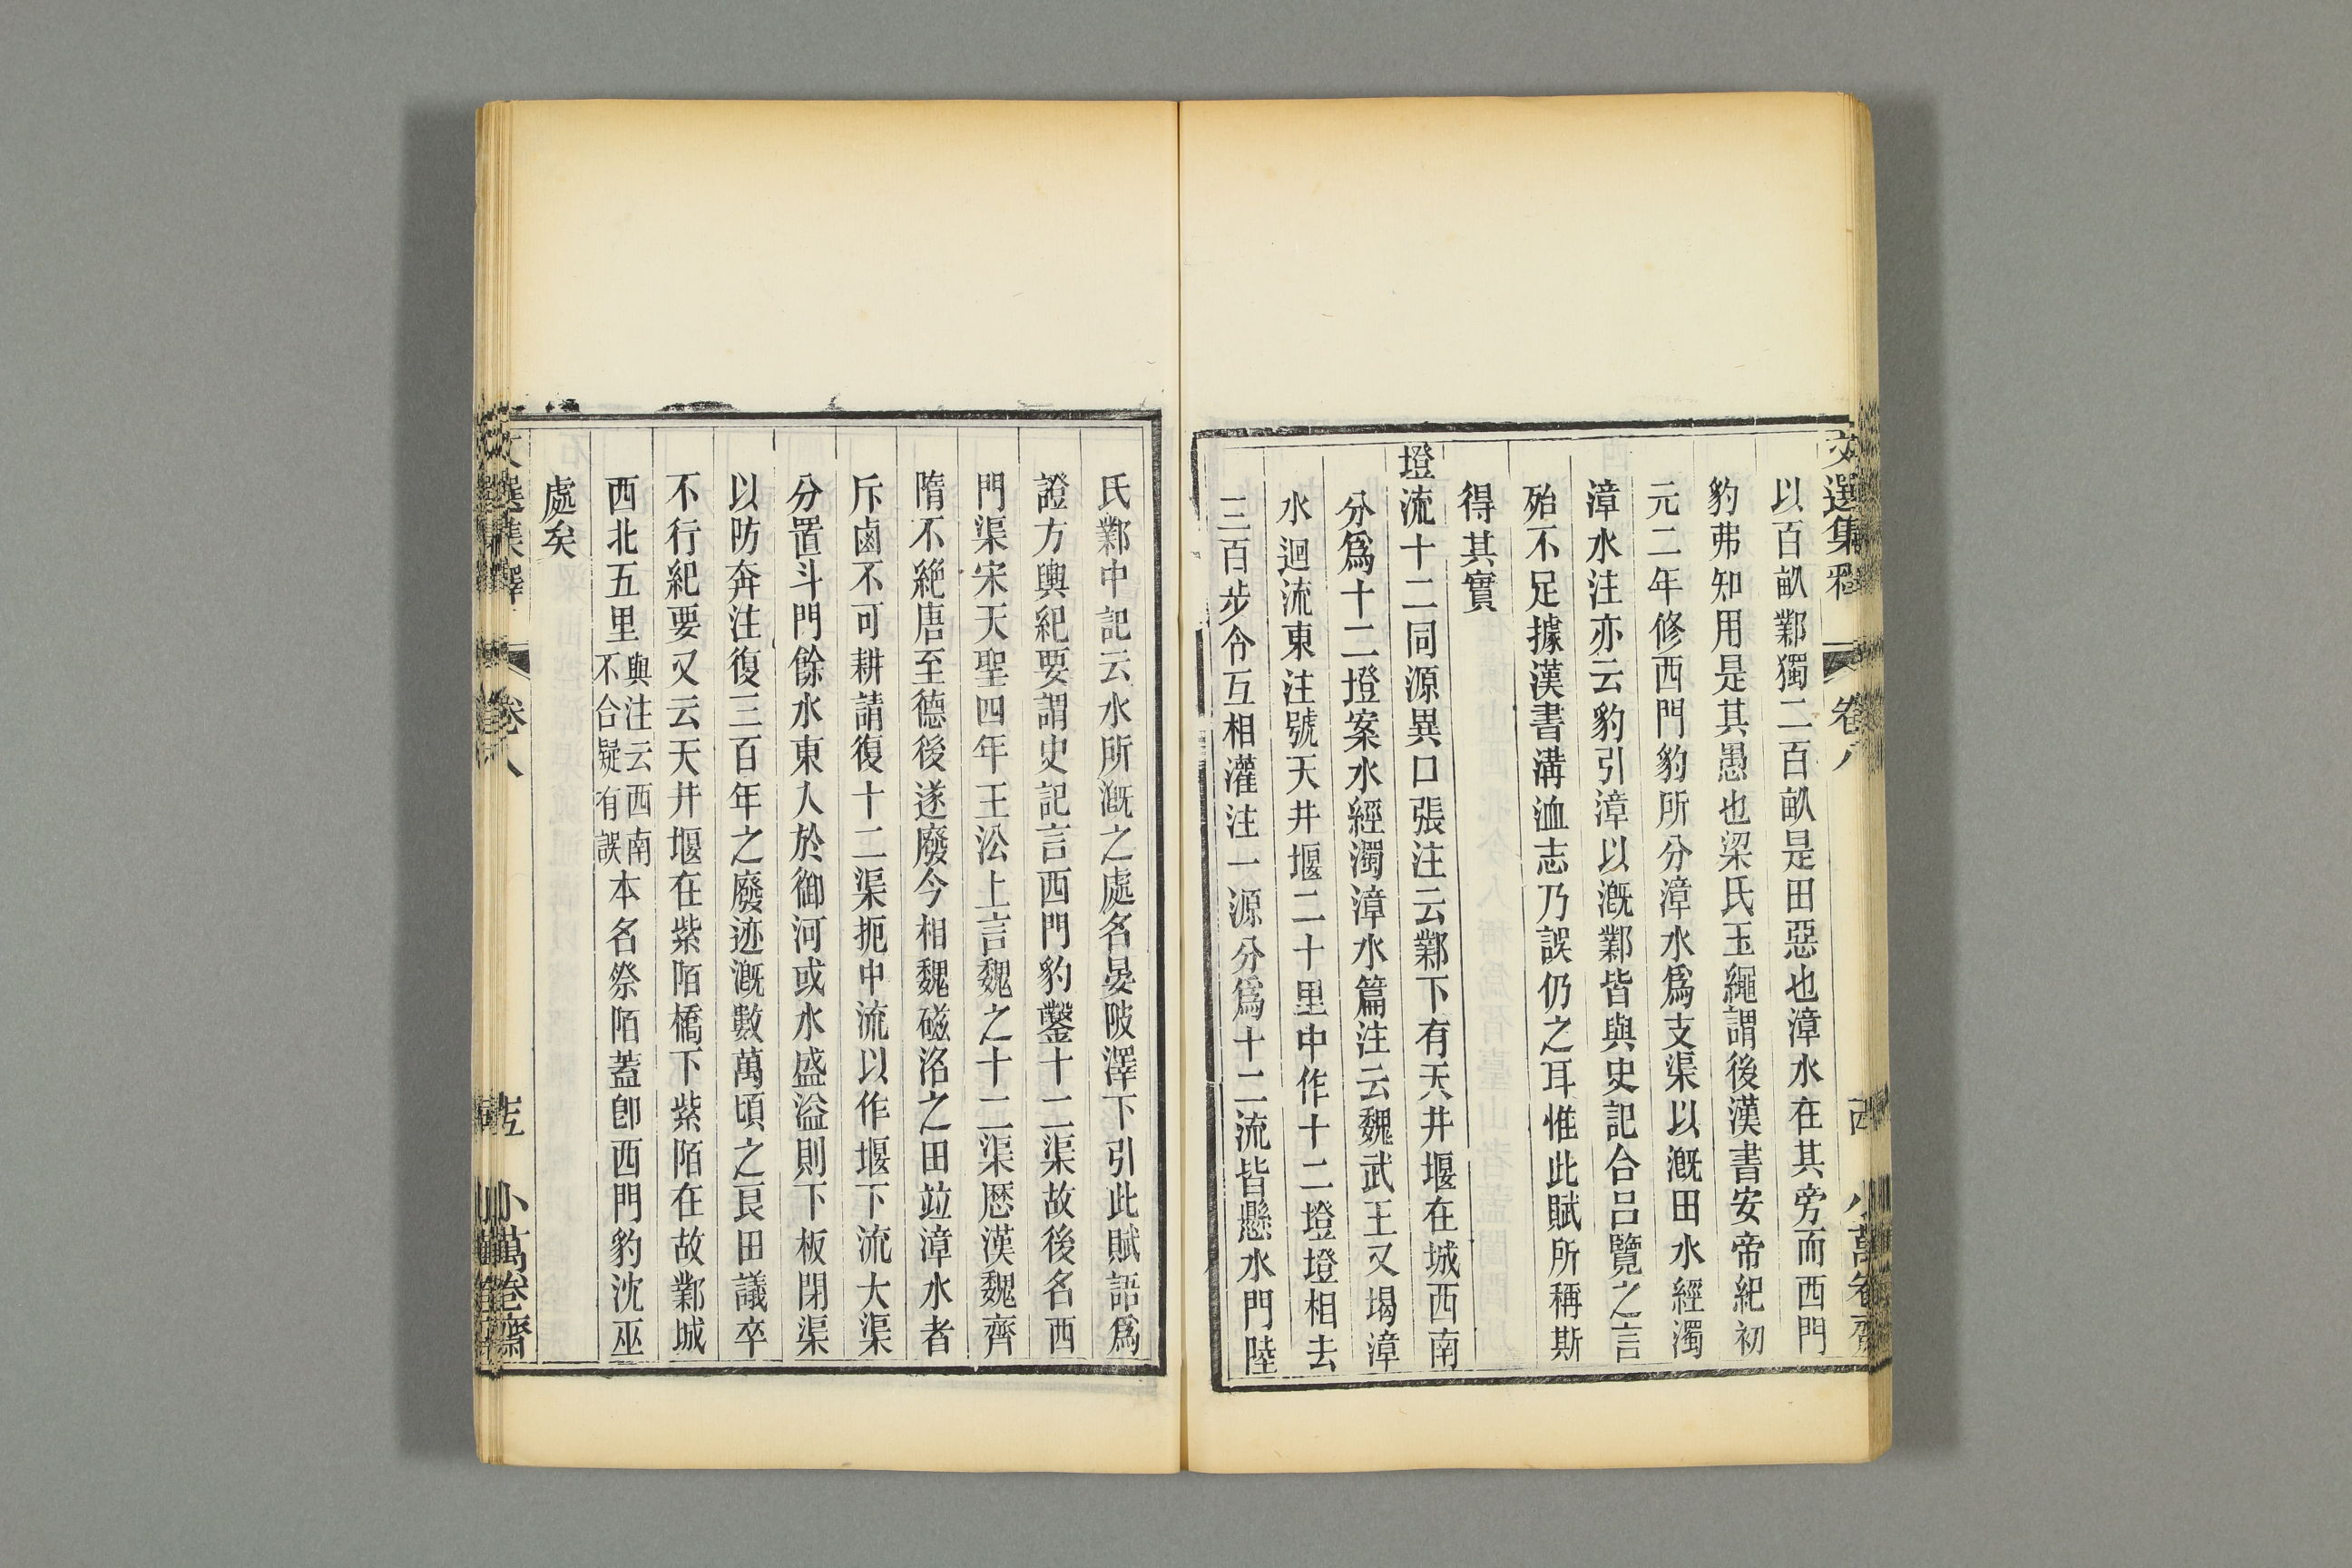 文選集釋 卷八 小萬卷齋
以百畝鄴獨二百畝是田惡也漳水在其旁而西門
豹弗知用是其愚也梁氏玉繩謂後漢書安帝紀初
元二年修西門豹所分漳水爲支渠以漑田水經濁
漳水注亦云豹引漳以漑鄴皆與史記合呂覽之言
殆不足據漢書溝洫志乃誤仍之耳惟此賦所稱斯
得其實
墱流十二同源異口張注云鄴下有天井堰在城西南
分爲十二墱案水經濁漳水篇注云魏武王又堨漳
水迴流東注號天井堰二十里中作十二墱墱相去
三百步令互相灌注一源分爲十二流皆懸水門陸
氏鄴中記云水所漑之處名晏陂澤下引此賦語爲
證方輿紀要謂史記言西門豹鑿十二渠故後名西
門渠宋天聖四年王沿上言魏之十二渠歷漢魏齊
隋不絶唐至德後遂廢今相魏磁洺之田竝漳水者
斥鹵不可耕請復十二渠扼中流以作堰下流大渠
分置斗門餘水東入於御河或水盛溢則下板閉渠
以防奔注復三百年之廢迹漑數萬頃之良田議卒
不行紀要又云天井堰在紫陌橋下紫陌在故鄴城
西北五里與注云西南不合疑有誤本名祭陌蓋卽西門豹沈巫
處矣
文選集釋 卷八 小萬卷齋